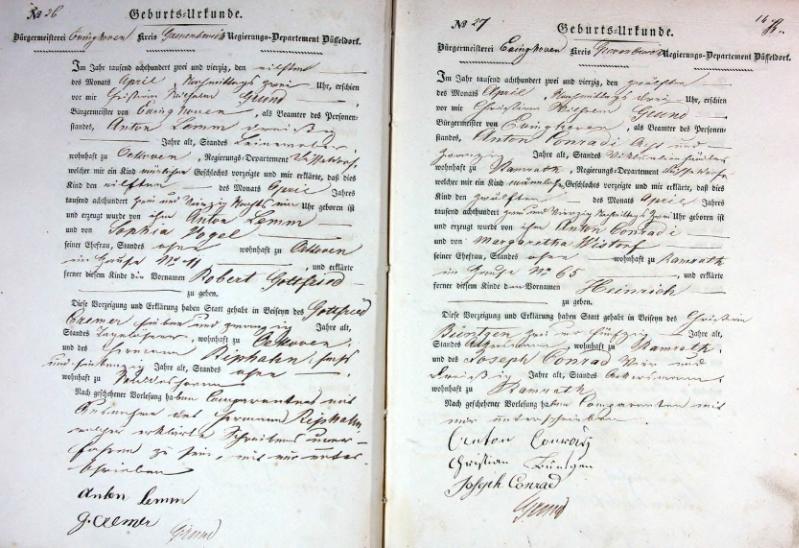 No 26
Geburts-Urkunde.
Bürgermeisterei Evinghoven Kreis Regierungs-Departement Düsseldorf.
Im Jahr tausend achthundert zwei und vierzig, den eilften
des Monats April Nachmittags Uhr, erschien
vor mir Christian Wilhelm Grund
Bürgermeister von Evinghoven, als Beamter des Personen-
standes, Anton Lemm dreißig
Jahre alt, Standes Leineweber,
wohnhaft zu Oekoven, Regierungs-Departement Düsseldorf,
welcher mir ein Kind männlichen Geschlechts vorzeigte und mir erklärte, daß dies
Kind den eilften des Monats April Jahres
tausend achthundert zwei und vierzig Uhr geboren ist
und erzeugt wurde von ihm Anton Lemm
und von Sophia Vogel
seiner Ehefrau, Standes ohne wohnhaft zu Oekoven
im Hause No 11, und erklärte
ferner diesem Kinde den Vornamen Robert Gottfried
zu geben.
Diese Vorzeigung und Erklärung haben Statt gehabt in Beiseyn des Gottfried
Cremer sieben und zwanzig Jahre alt,
Standes Tagelöhner, wohnhaft zu Oekoven,
und des Hermann Ripphahn, sechs
und Jahre alt, Standes ohne
wohnhaft zu
Nach geschehener Vorlesung haben Comparenten mit
Ausnahme des Hermann Ripphahn
welcher erklärte Schreibens uner-
fahren zu sein, mit mir unter-
schrieben
Anton Lemm
G. Cremer
Grund
No 27
Geburts-Urkunde.
Bürgermeisterei Evinghoven Kreis Regierungs-Departement Düsseldorf.
Im Jahr tausend achthundert zwei und vierzig, den zwölften
des Monats April, Nachmittags drei Uhr, erschien
vor mir Christian Wilhelm Grund
Bürgermeister von Evinghoven, als Beamter des Personen-
standes, Anton Conradi acht und
zwanzig Jahre alt, Standes
wohnhaft zu Ramrath, Regierungs-Departement Düsseldorf
welcher mir ein Kind männlichen Geschlechts vorzeigte und mir erklärte, daß dies
Kind den zwölften des Monats April Jahres
tausend achthundert zwei und vierzig Nachmittags zwei Uhr geboren ist
und erzeugt wurde von ihm Anton Conradi
und von Margaretha Wistorf
seiner Ehefrau, Standes ohne wohnhaft zu Ramrath
im Hause No 65, und erklärte
ferner diesem Kinde den Vornamen Heinrich
zu geben.
Diese Vorzeigung und Erklärung haben Statt gehabt in Beiseyn des Christian
Büntgen zwei und fünfzig Jahre alt,
Standes Ackersmann, wohnhaft zu Ramrath,
und des Joseph Conrad vier und
dreißig Jahre alt, Standes Ackersmann,
wohnhaft zu Ramrath
Nach geschehener Vorlesung haben Comparenten mit
mir unterschrieben
Anton Conrady
Christian Büntgen
Joseph Conrad
Grund